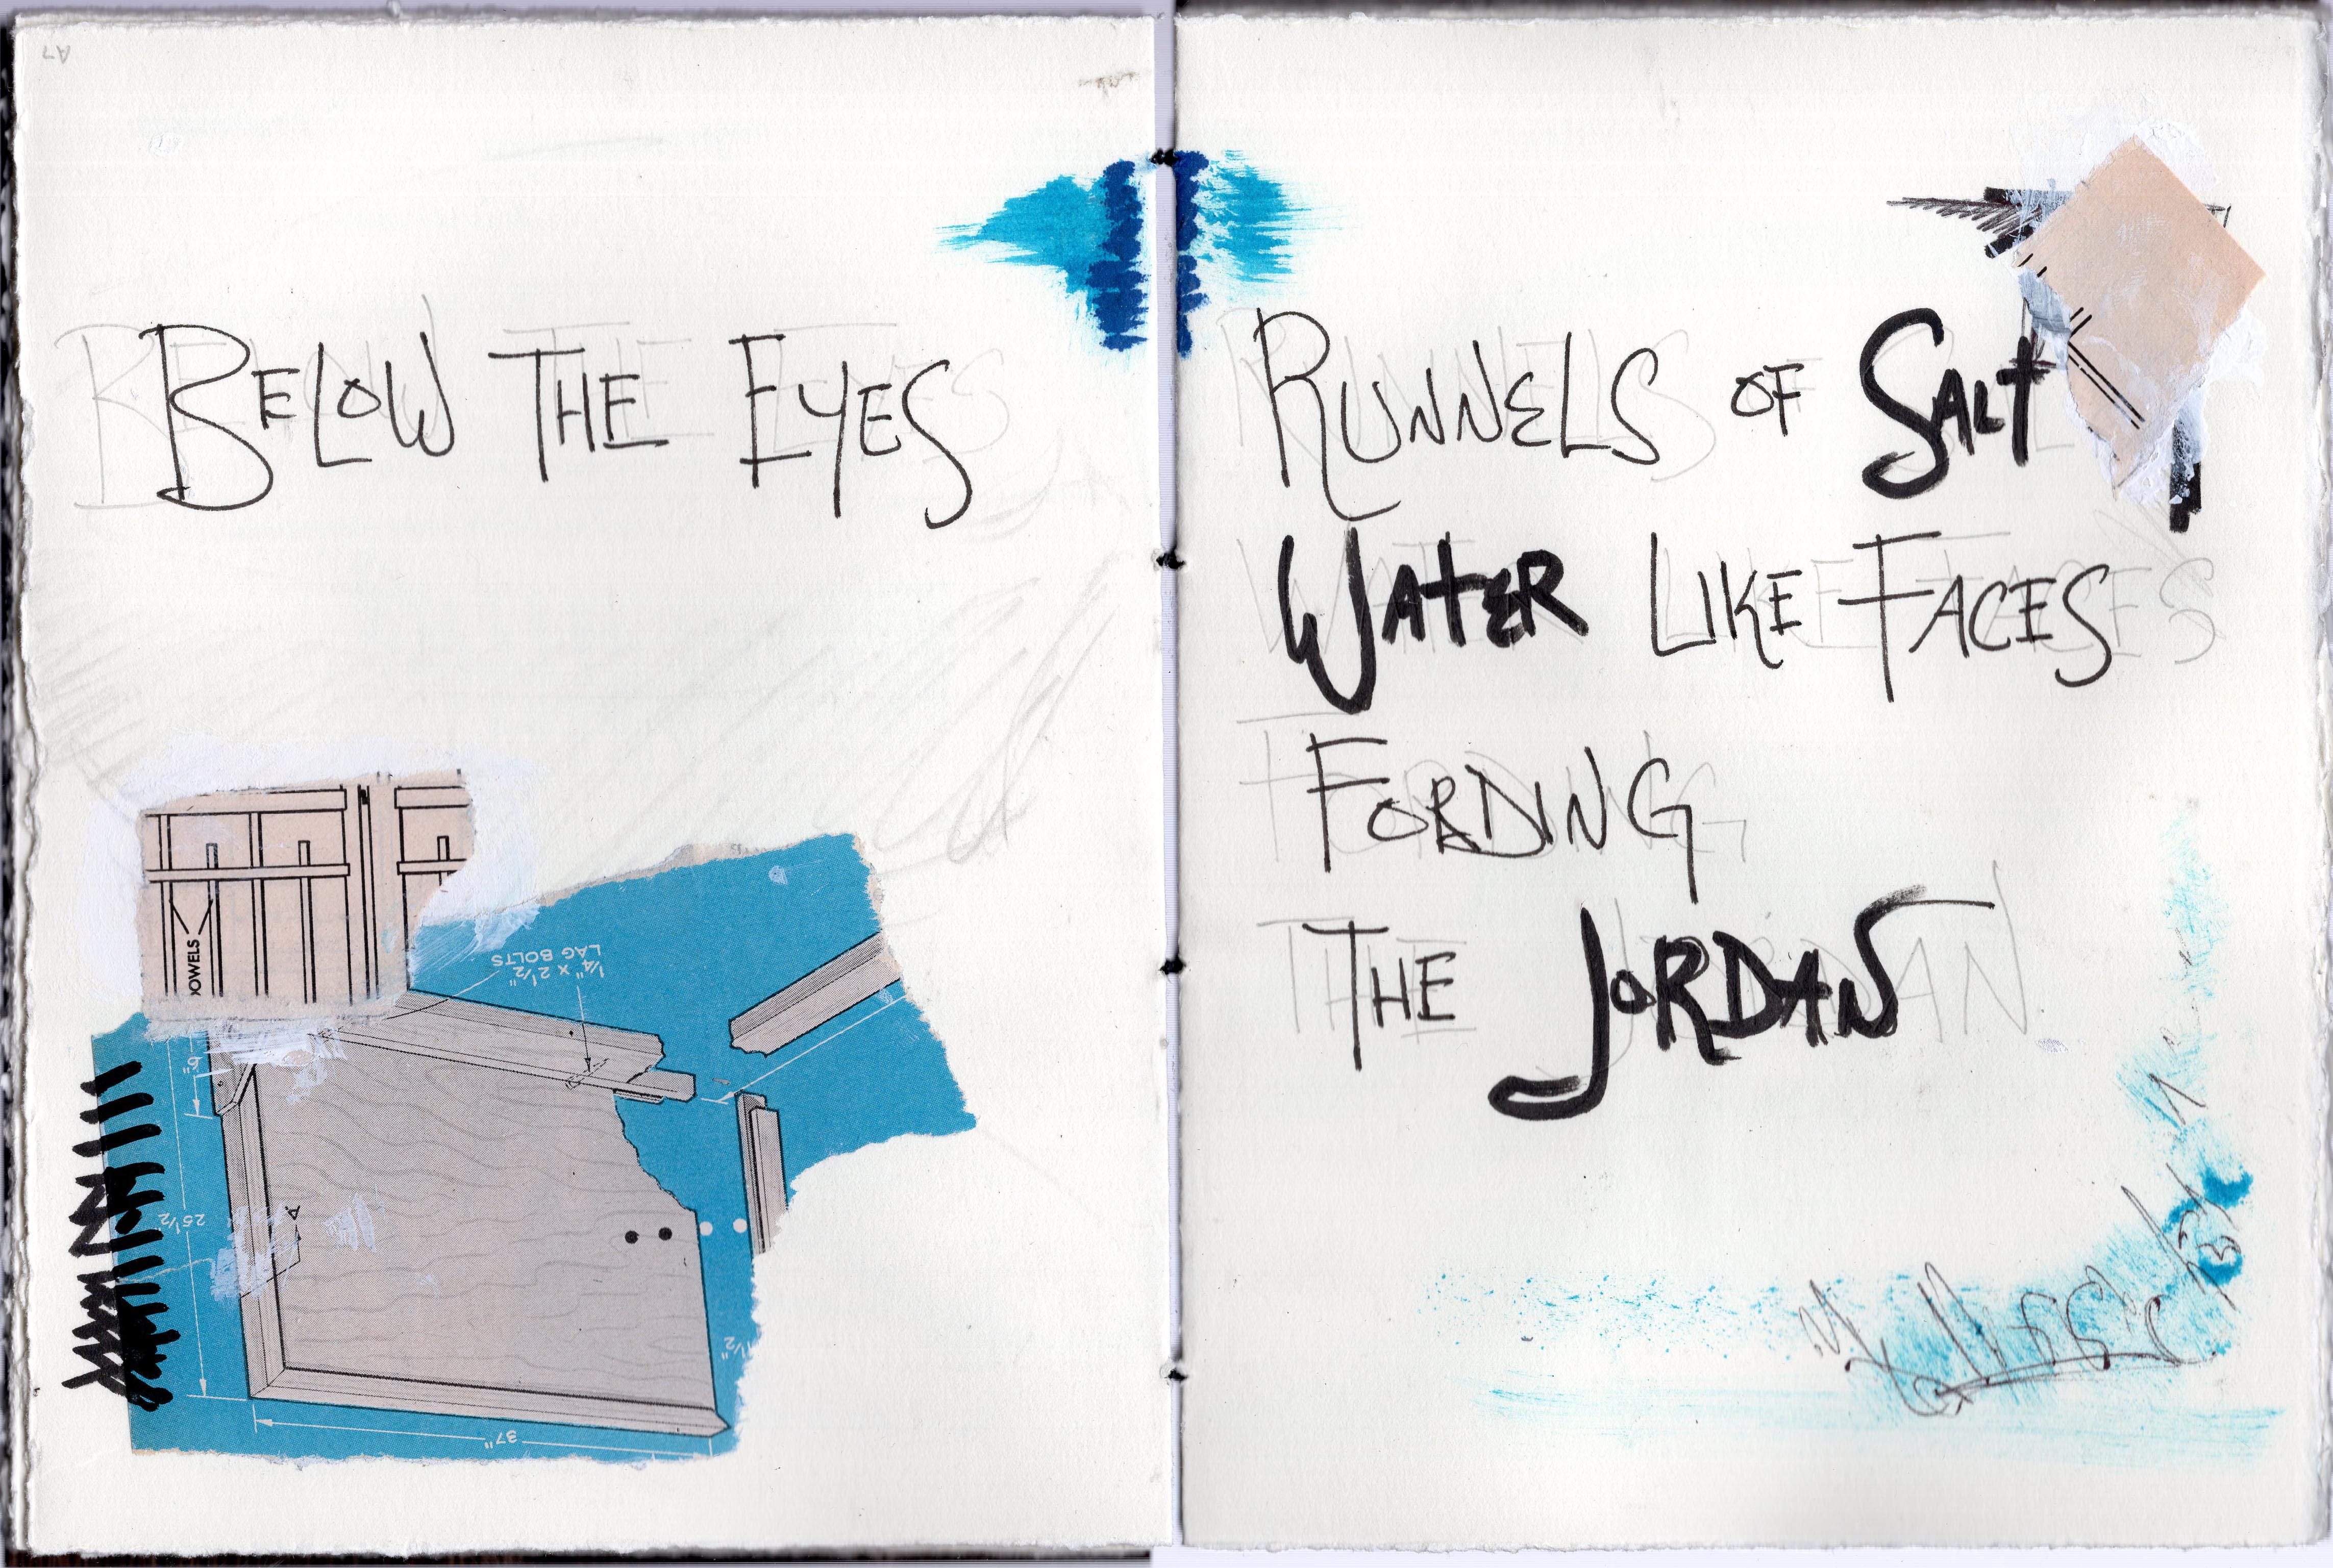 A7
BELOW THE EYES
DOWELS
1/4" X 2 1/2
LAG BOLTS
6"
A
25 1/2
1 1/2"
37"
RUNNELS OF SALT
WATER LIKE FACES
FORDING
THE JORDAN